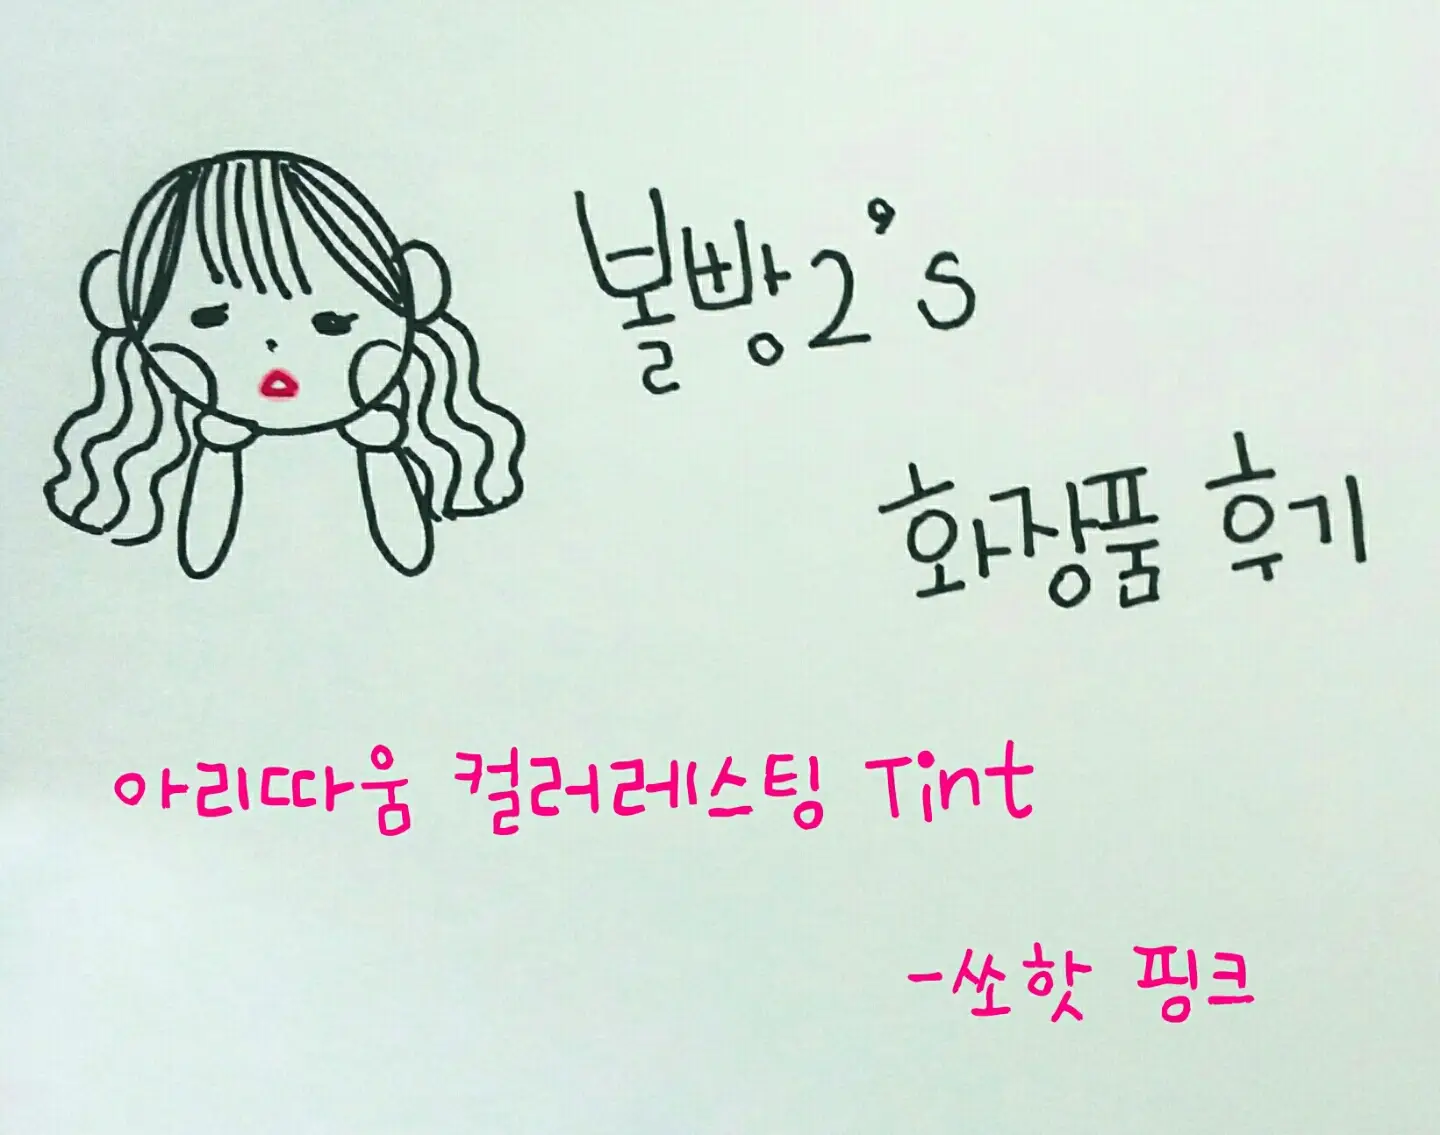 볼빵2's
화장품 후기
아리따움 컬러레스팅 Tint
-쏘핫 핑크